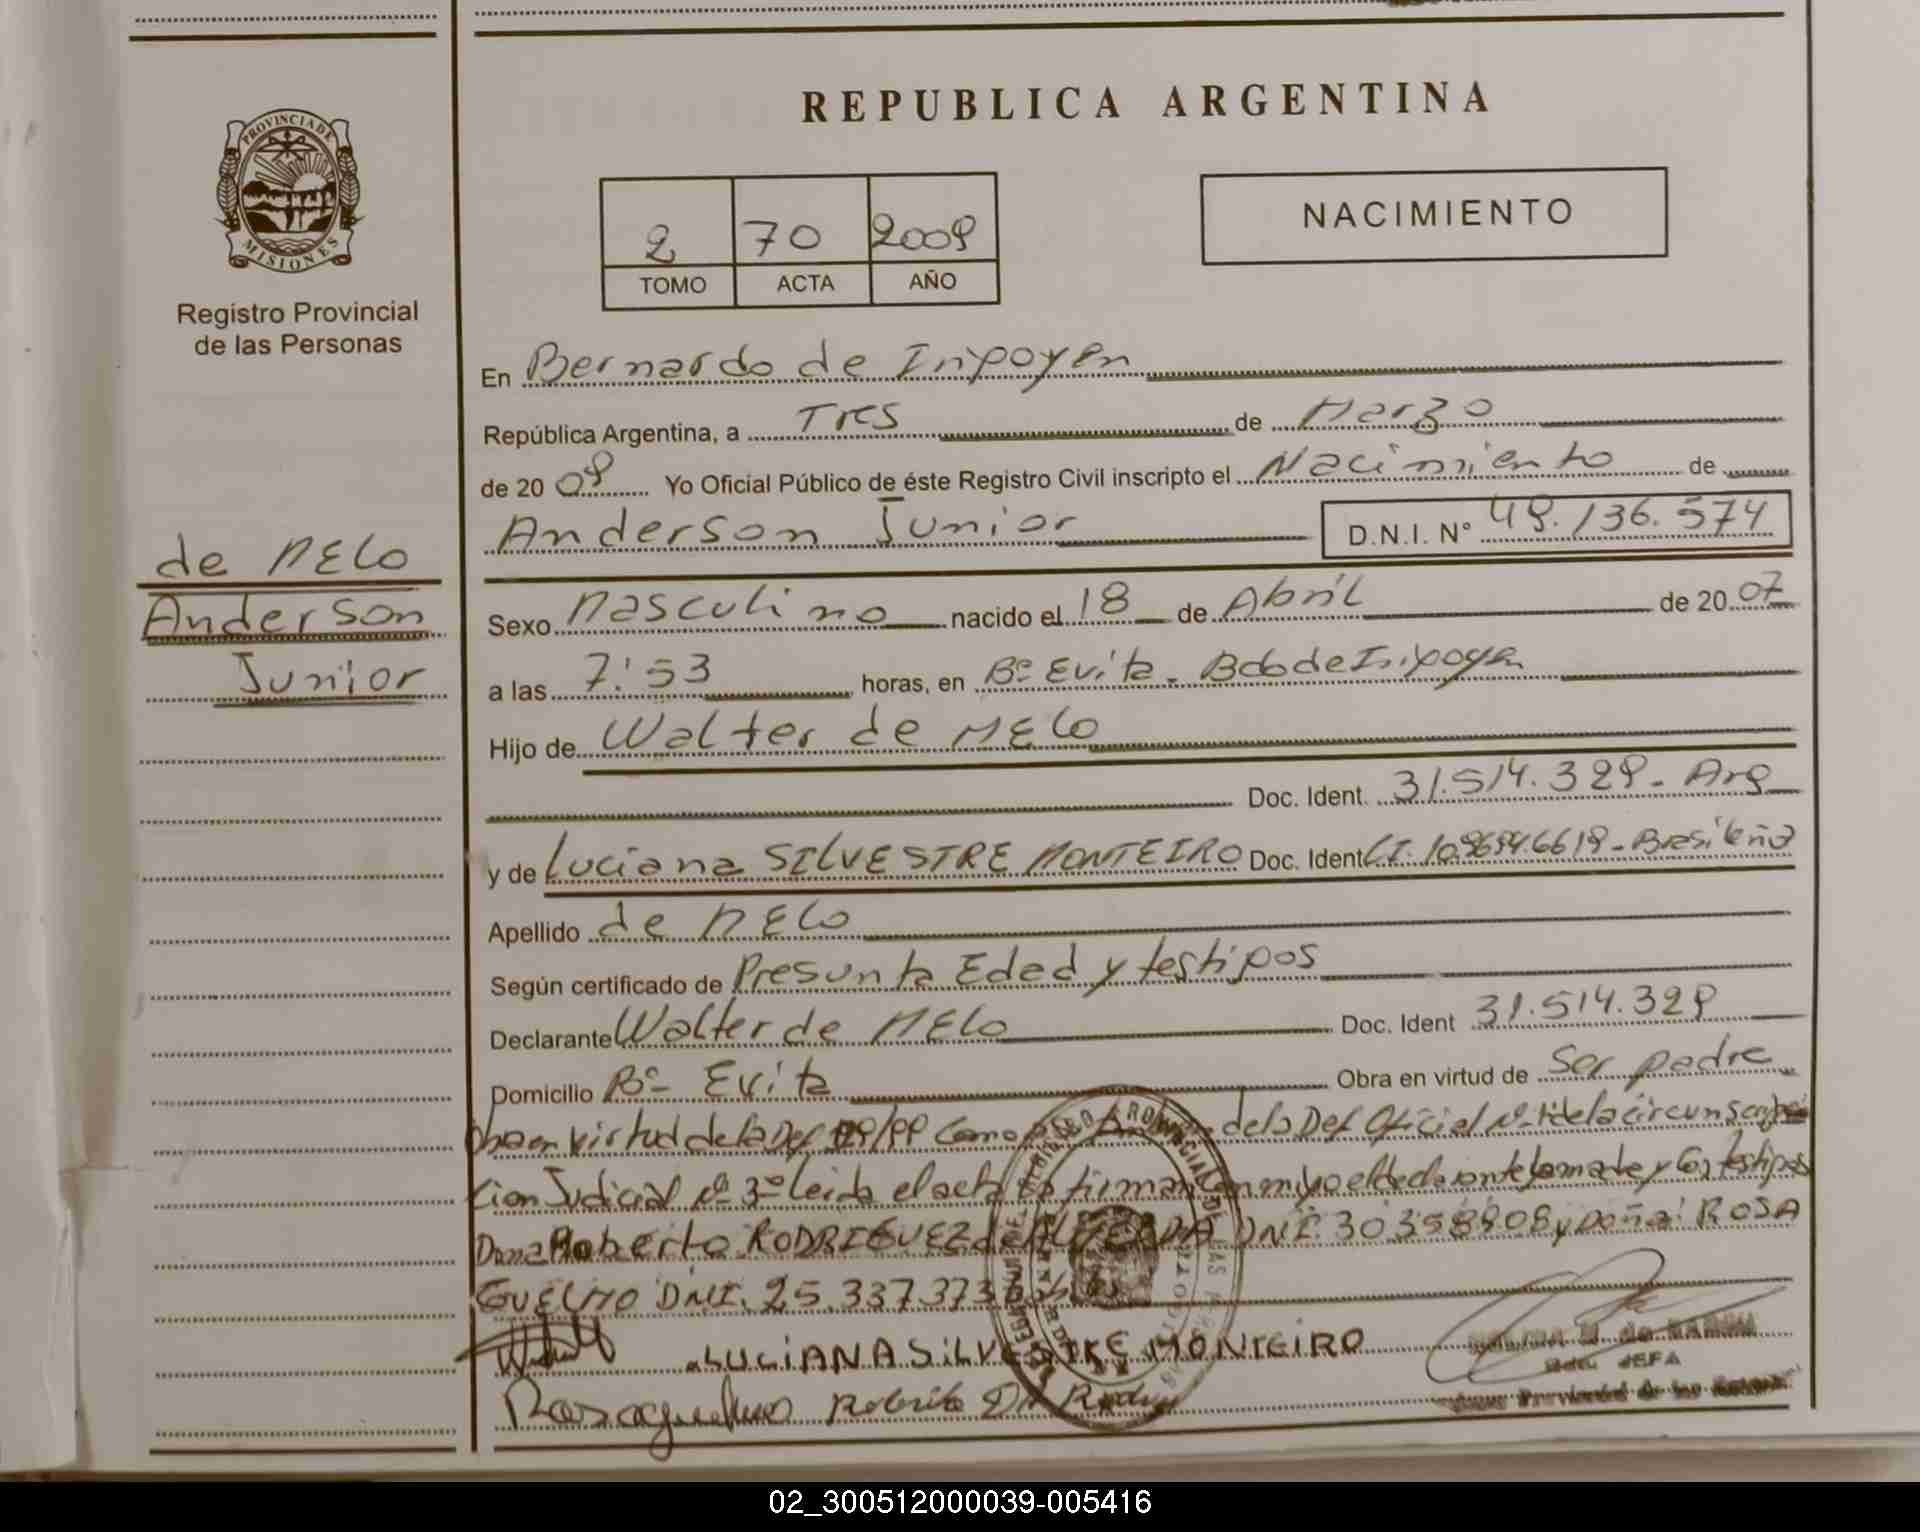 REPUBLICA ARGENTINA
PROVINCIA DE
MISIONES
Registro Provincial
de las Personas
2 70 2009
TOMO ACTA AÑO
NACIMIENTO
En Bernardo de Iripoyen
República Argentina, a Tres de Marzo
de 20 09 Yo Oficial Público de éste Registro Civil inscripto el Nacimiento de
Anderson Junior D.N.I. N° 49.136.574
de MELO
Anderson
Junior
Sexo Masculino nacido el 18 de Abril de 20 07
a las 7:53 horas, en Bº Evita - Bdo de Iripoyen
Hijo de Walter de MELO
Doc. Ident. 31.514.329 - Arg
y de Luciana SILVESTRE MONTEIRO Doc. Ident C.I. 10.9694.6619 - Brasileña
Apellido de MELO
Según certificado de Presunta Edad y testipos
Declarante Walter de MELO Doc. Ident 31.514.329
Domicilio Bº Evita Obra en virtud de Ser padre
Obra en virtud de la de la Def Oficial Nº 1 de la circunscrip
cion Judicial Nº 3º Leida el acta la firman conmigo el declarante la madre y los testipos
Roberto RODRIGUEZ DNI. 30.358.908 y Doña: ROSA
GUELMO DNI. 25.337.373
LUCIANA SILVESTRE MONTEIRO
JEFA
02_300512000039-005416